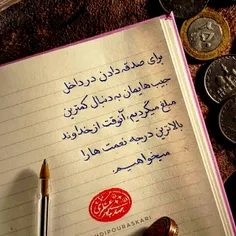 برای صدقه دادن در داخل
جیب‌هایمان به دنبال کمترین
مبلغ میگردیم، آنوقت از خداوند
بالاترین درجه نعمت ها را
میخواهیم.
DIPOURASKARI